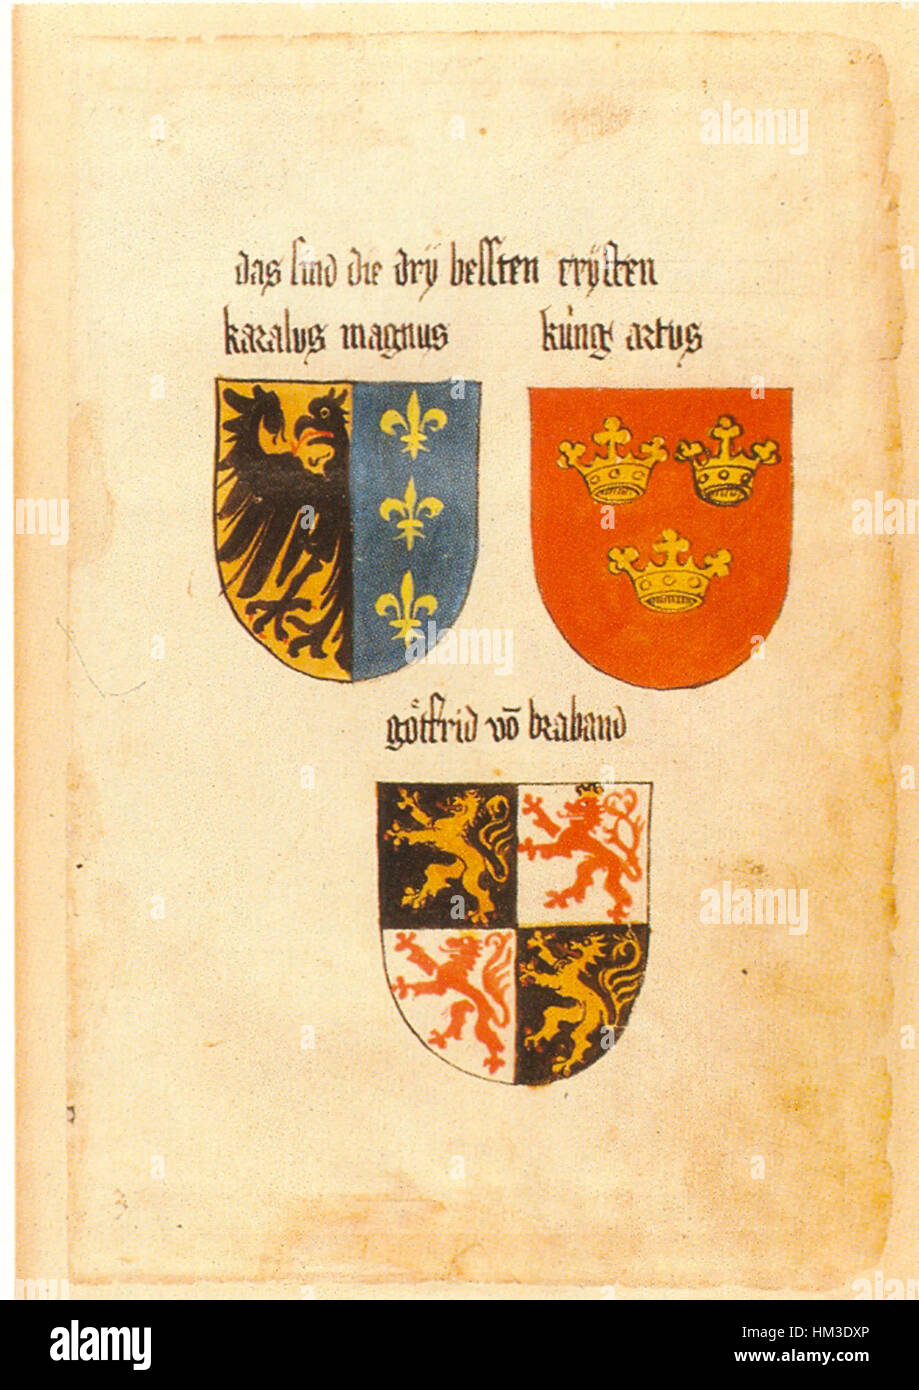 das sind die drÿ bessten crÿsten
karalus magnus
küng artus
götfrid vō braband
alamy
Image ID: HM3DXP
www.alamy.com